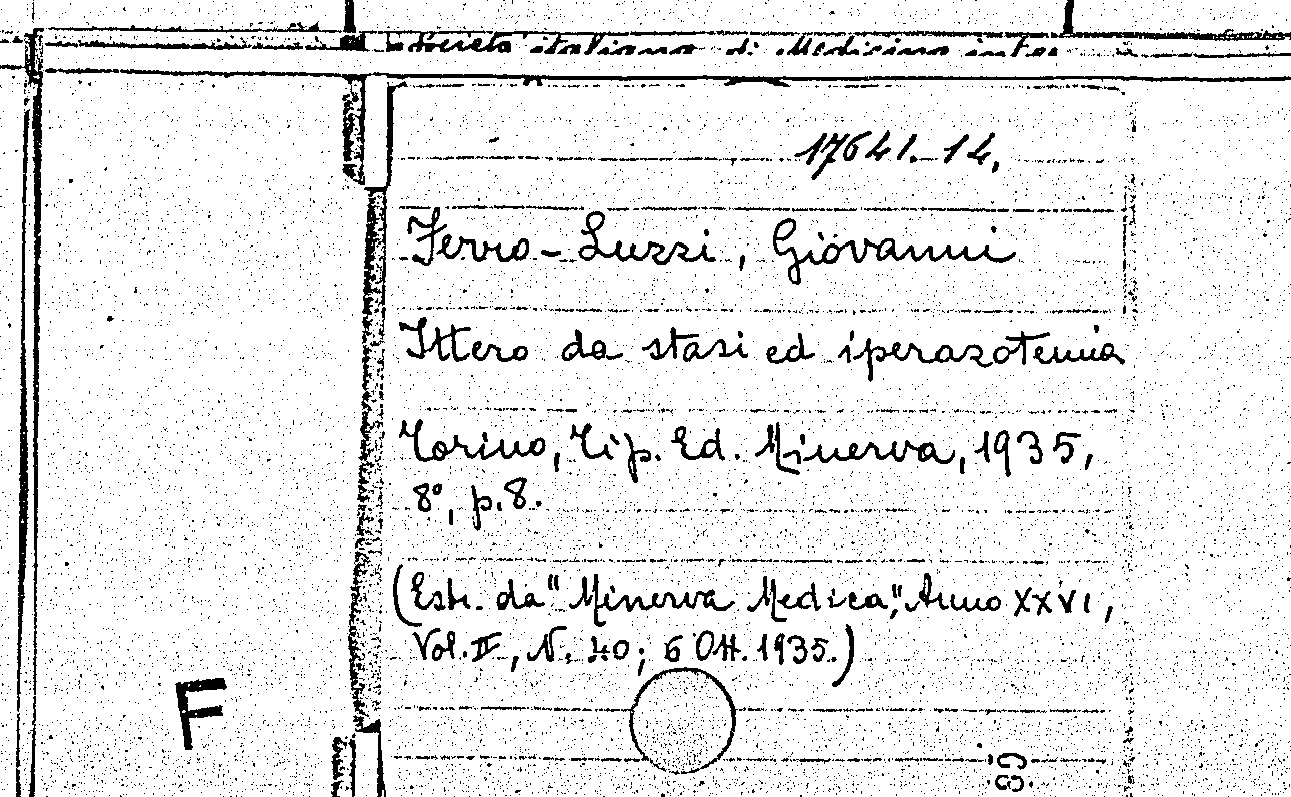 Società italiana di Medicina inter
17641.14.
Ferro-Luzzi, Giovanni
Ittero da stasi ed iperazotemia
Torino, Tip. Ed. Minerva, 1935,
8°, p.8.
(Estr. da "Minerva Medica", Anno XXVI,
Vol. II, N. 40; 6 Ott. 1935.)
F